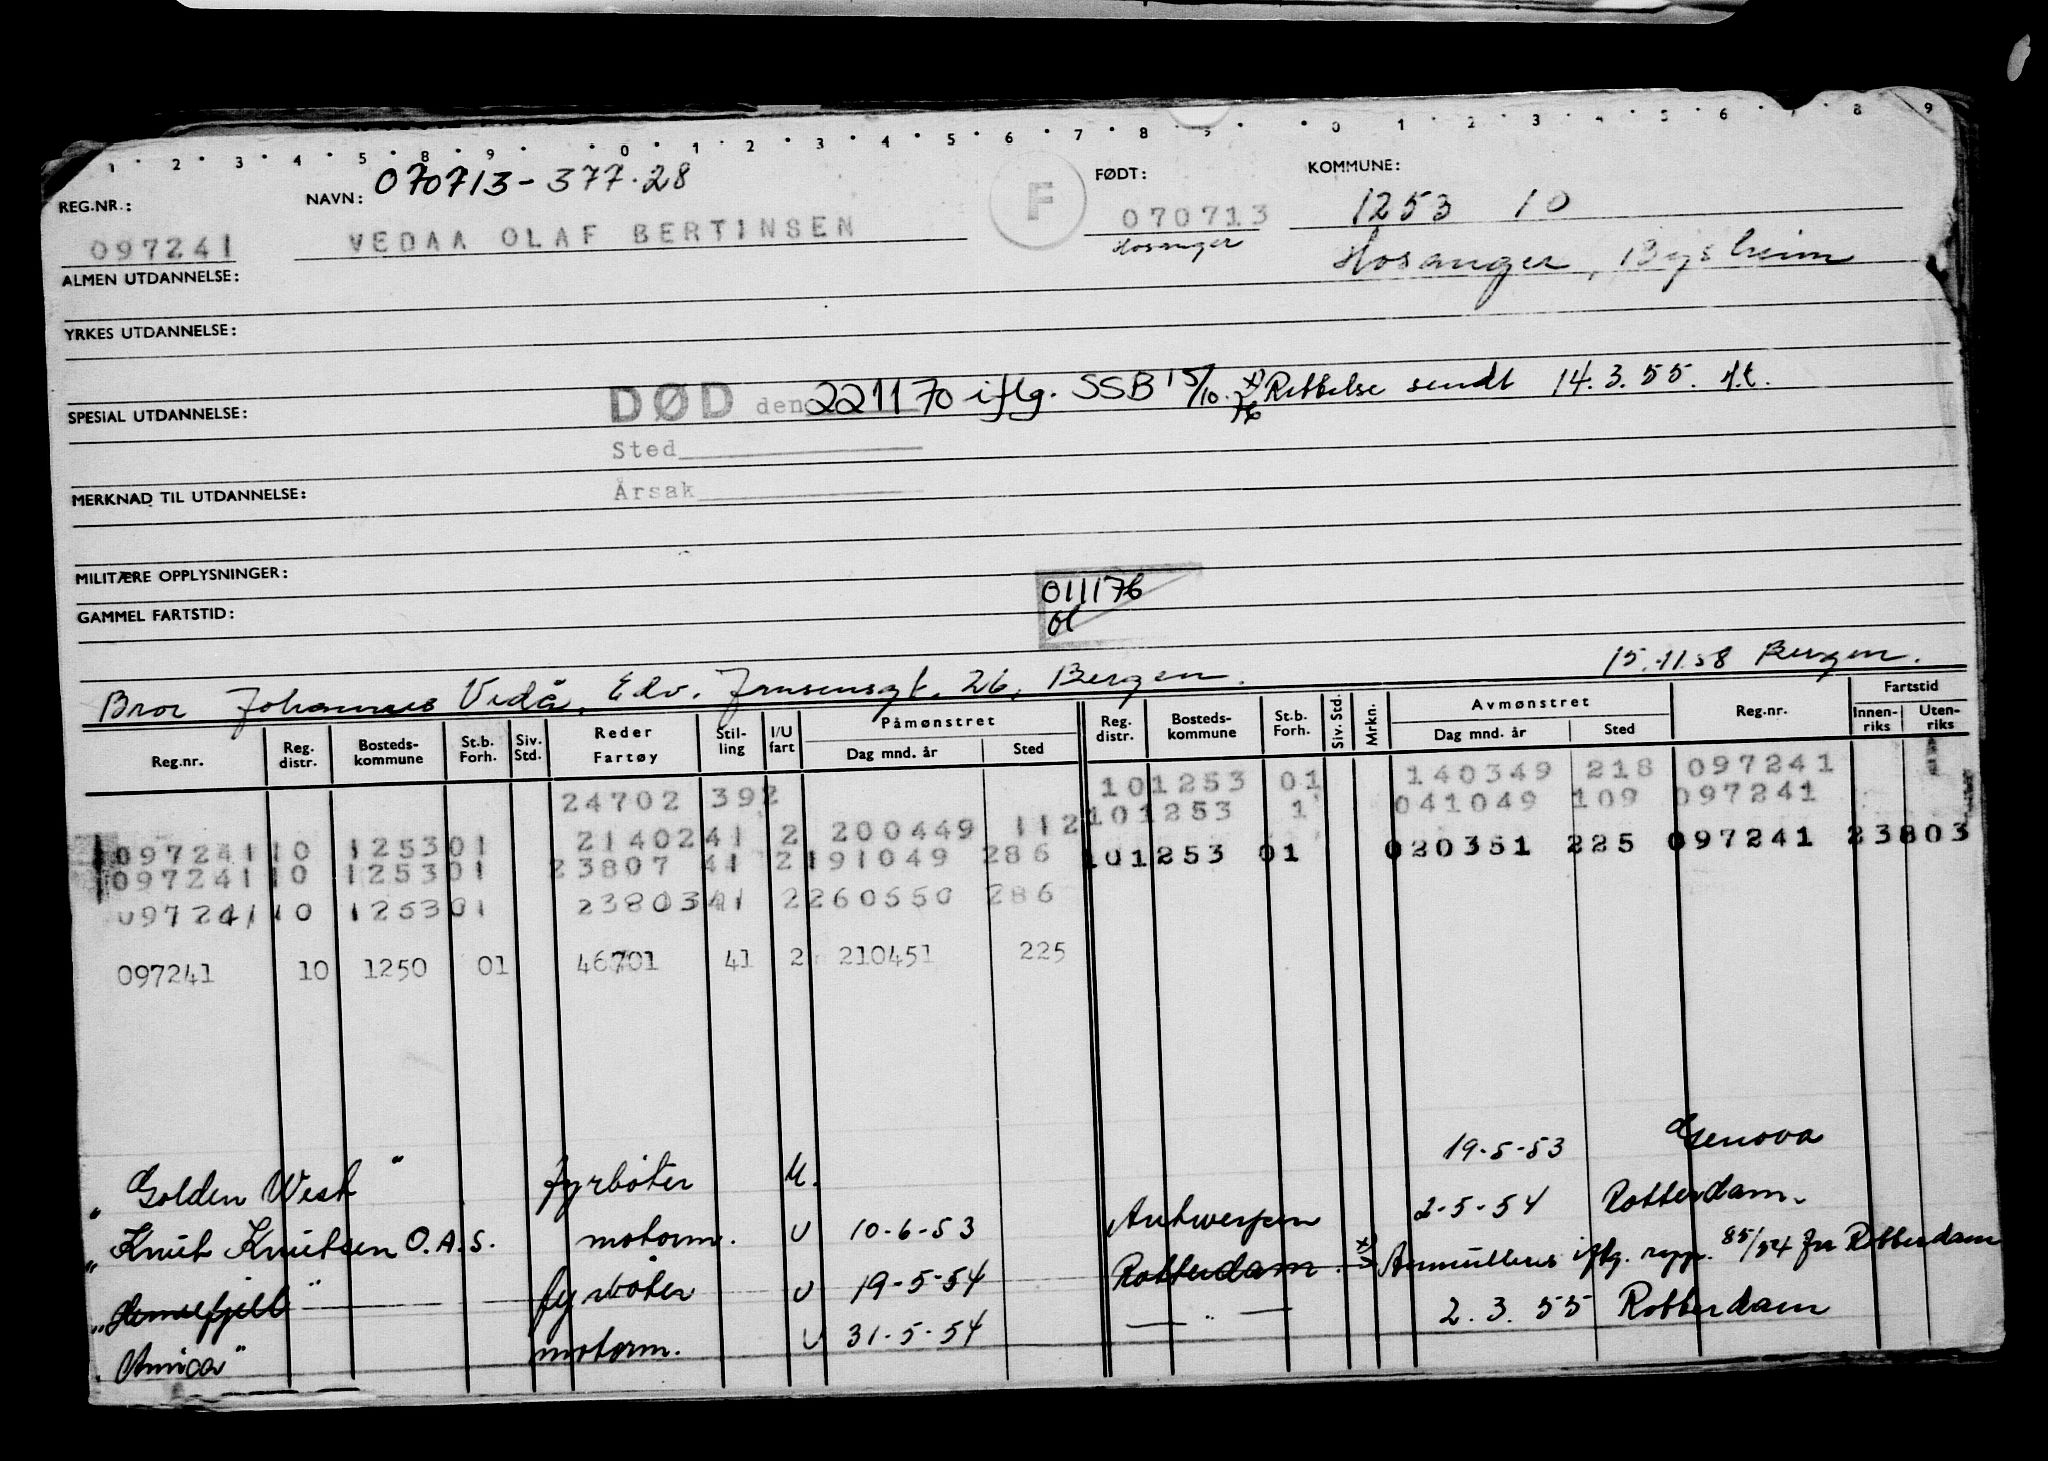 1 2 3 4 5 8 9 0 1 2 3 4 5 6 7 8 9 0 1 2 3 4 5 6 7 8 9
070713-377.28
REG.NR.: NAVN: F FØDT: KOMMUNE:
097241 VEDAA OLAF BERTINSEN 070713 1253 10
Hosanger Hosanger, Bysheim
ALMEN UTDANNELSE:
YRKES UTDANNELSE:
SPESIAL UTDANNELSE: DØD den 221170 iflg. SSB 15/10.76 x) Rettelse sendt 14.3.55.
Sted
MERKNAD TIL UTDANNELSE: Årsak
MILITÆRE OPPLYSNINGER:
011176
GAMMEL FARTSTID:
15.11.58 Bergen.
Bror Johannes Vedå, Edv. Jansensgt. 26, Bergen.
Reg.nr. Reg. distr. Bosteds-kommune St.b. Forh. Siv. Std. Reder Fartøy Stil-ling I/U fart Påmønstret Dag mnd. år Sted Reg. distr. Bosteds-kommune St.b. Forh. Siv. Std. Mrkn. Avmønstret Dag mnd. år Sted Reg.nr. Fartstid Innen-riks Uten-riks
24702 392 101253 01 140349 218 097241
097241 10 1253 01 21402 41 2 200449 112 101253 1 041049 109 097241
097241 10 1253 01 23807 41 2 191049 286 101253 01 020351 225 097241 23803
097241 10 1253 01 23803 41 2 260550 286
097241 10 1250 01 46701 41 2 210451 225
"Golden West" fyrbøter U. 19-5-53 Genova
"Knut Knutsen O.A.S. motorm. U 10-6-53 Antwerpen 2-5-54 Rotterdam.
"Hemsefjell" fyrbøter U 19-5-54 Rotterdam. x) Annulleres iflg. rapp. 85/54 fra Rotterdam
"Amica" motorm. U 31-5-54 — " — 2.3.55 Rotterdam